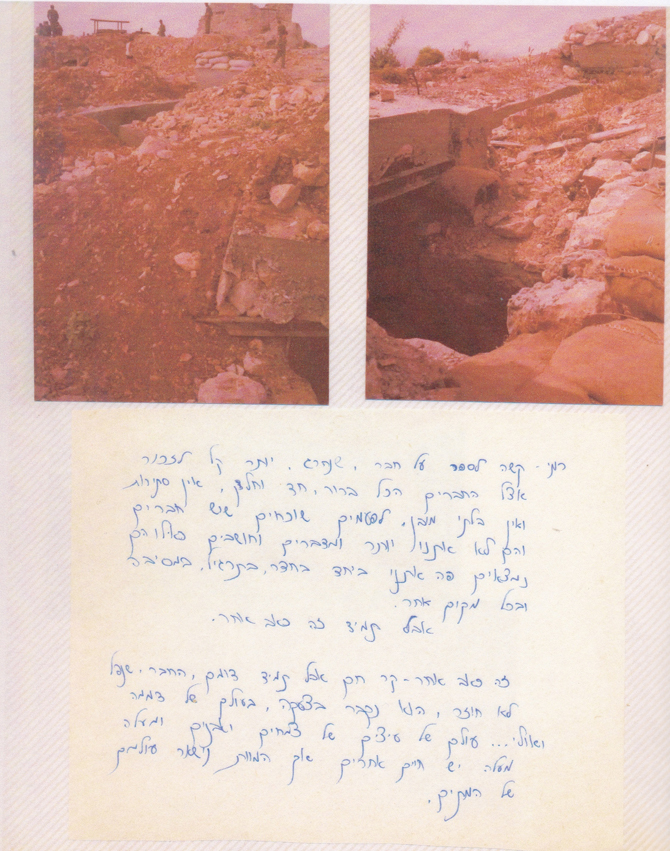 רמי - קשה לספר על חבר, שנהרג, יותר קל לזכור
אצל החברים הכל ברור, חד וחלק, אין סתירות
ואין בלתי מובן. לפעמים שוכחים שיש חברים
והם לא איתנו יותר ומדברים וחושבים כאילו הם
נמצאים פה איתנו ביחד בחדר, בתרגיל, במסיבה
ובכל מקום אחר.
אבל תמיד זה כאב אחר.
זה כאב אחר - קר חם אבל תמיד דומם, החבר, שנפל
לא חוזר, הוא נקבר בצעקה, בעולם של דממה
ואולי... עולם של עיצים של צמחים ואבנים ומעלה
מעלה יש חיים אחרים אך המוות נישאר עולמם
של המתים.